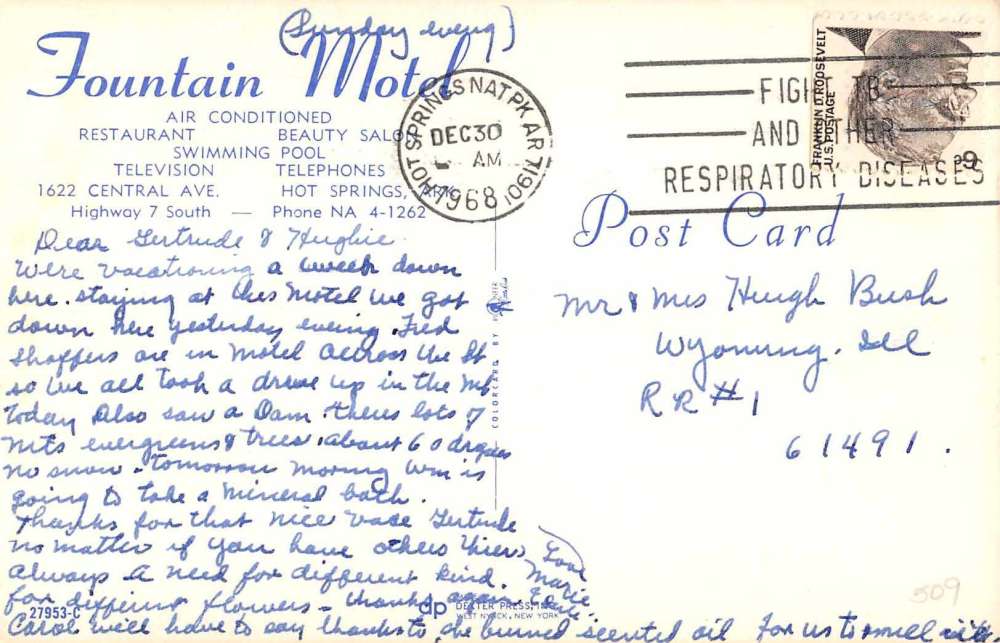 (Sunday eveng)
Fountain Motel
AIR CONDITIONED
RESTAURANT BEAUTY SALON
SWIMMING POOL
TELEVISION TELEPHONES
1622 CENTRAL AVE. HOT SPRINGS, ARK.
Highway 7 South — Phone NA 4-1262
HOT SPRINGS NAT PK AR 71901
DEC 30
AM
1968
FIGHT TB
AND OTHER
RESPIRATORY DISEASES
FRANKLIN D. ROOSEVELT
U.S. POSTAGE
6¢
Post Card
Dear Gertrude & Hughie
We're vacationing a week down
here. staying at this Motel we got
down here yesterday evening. Fred
Shaffers are in Motel across the St
so we all took a drive up in the Mts
today Also saw a Dam. theres lots of
Mts evergreens & trees. about 60 degrees
no snow. tomorrow morning Wm is
going to take a mineral bath.
Thanks for that nice vase Gertrude
no matter if you have others theres
always a need for different kind.
for different flowers - thanks again.
Love
Marie
Carol will have to say thanks to, the burned scented oil for us to smell
Mr & Mrs Hugh Bush
Wyoming. Ill
RR #1
61491.
COLORCARD BY
27953-C
dp DEXTER PRESS, INC.
WEST NYACK, NEW YORK
509